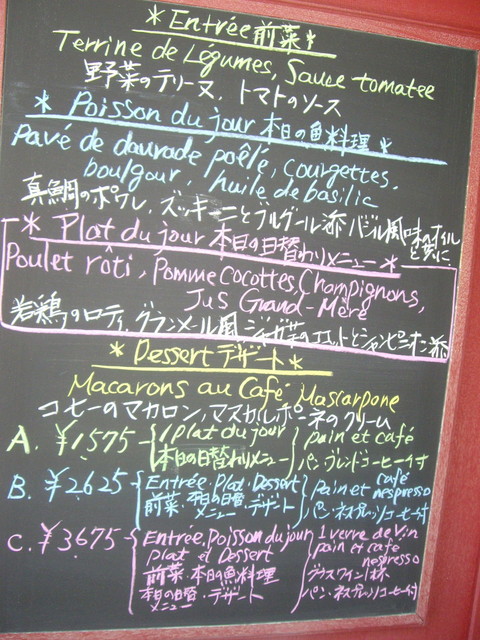 *Entrée前菜*
Terrine de Légumes, Sauce tomatee
野菜のテリーヌ、トマトのソース
* Poisson du jour 本日の魚料理 *
Pavé de daurade poêlé, courgettes.
boulgour, huile de basilic
真鯛のポワレ、ズッキーニとブルグール添 バジル風味のオイル
と共に
* Plat du jour 本日の日替わりメニュー *
Poulet rôti, Pomme cocottes, Champignons,
Jus Grand-Mère
若鶏のロティ、グランメール風 ジャガ芋のココットとシャンピニオン添
* Dessert デザート *
Macarons au Café, Mascarpone
コーヒーのマカロン、マスカルポーネのクリーム
A. ¥1575 1 plat du jour pain et café
本日の日替わりメニュー パン・ブレンドコーヒー付
B. ¥2625 Entrée. Plat. Dessert pain et café
前菜・本日の日替 nespresso
メニュー・デザート パン・ネスプレッソコーヒー付
C. ¥3675 Entrée. Poisson du jour 1 verre de vin
plat et Dessert pain et café
前菜・本日の魚料理 nespresso
本日の日替 グラスワイン1杯
メニュー・デザート パン・ネスプレッソコーヒー付